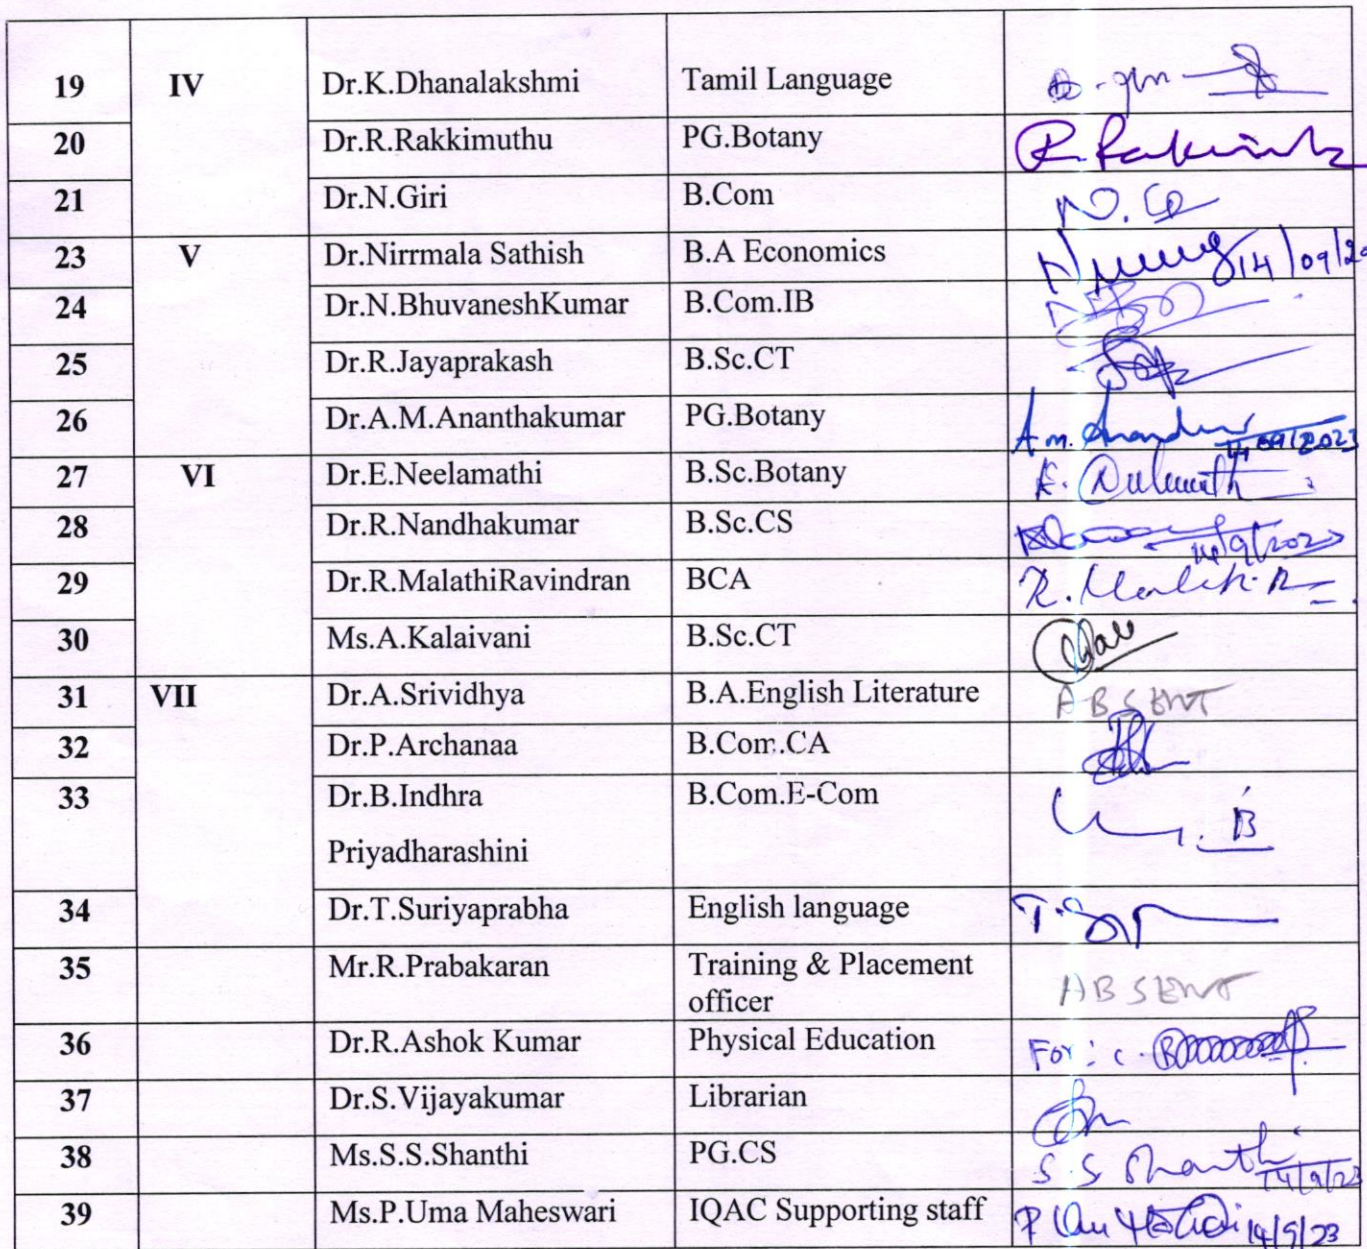 19 IV Dr.K.Dhanalakshmi Tamil Language
20 Dr.R.Rakkimuthu PG.Botany
21 Dr.N.Giri B.Com
23 V Dr.Nirrmala Sathish B.A Economics 14/09/20
24 Dr.N.BhuvaneshKumar B.Com.IB
25 Dr.R.Jayaprakash B.Sc.CT
26 Dr.A.M.Ananthakumar PG.Botany 14/09/2023
27 VI Dr.E.Neelamathi B.Sc.Botany
28 Dr.R.Nandhakumar B.Sc.CS 14/9/2023
29 Dr.R.MalathiRavindran BCA
30 Ms.A.Kalaivani B.Sc.CT
31 VII Dr.A.Srividhya B.A.English Literature ABSENT
32 Dr.P.Archanaa B.Com.CA
33 Dr.B.Indhra B.Com.E-Com
Priyadharashini
34 Dr.T.Suriyaprabha English language
35 Mr.R.Prabakaran Training & Placement
officer ABSENT
36 Dr.R.Ashok Kumar Physical Education For:
37 Dr.S.Vijayakumar Librarian
38 Ms.S.S.Shanthi PG.CS S.S Shanthi 14/9/23
39 Ms.P.Uma Maheswari IQAC Supporting staff 14/9/23